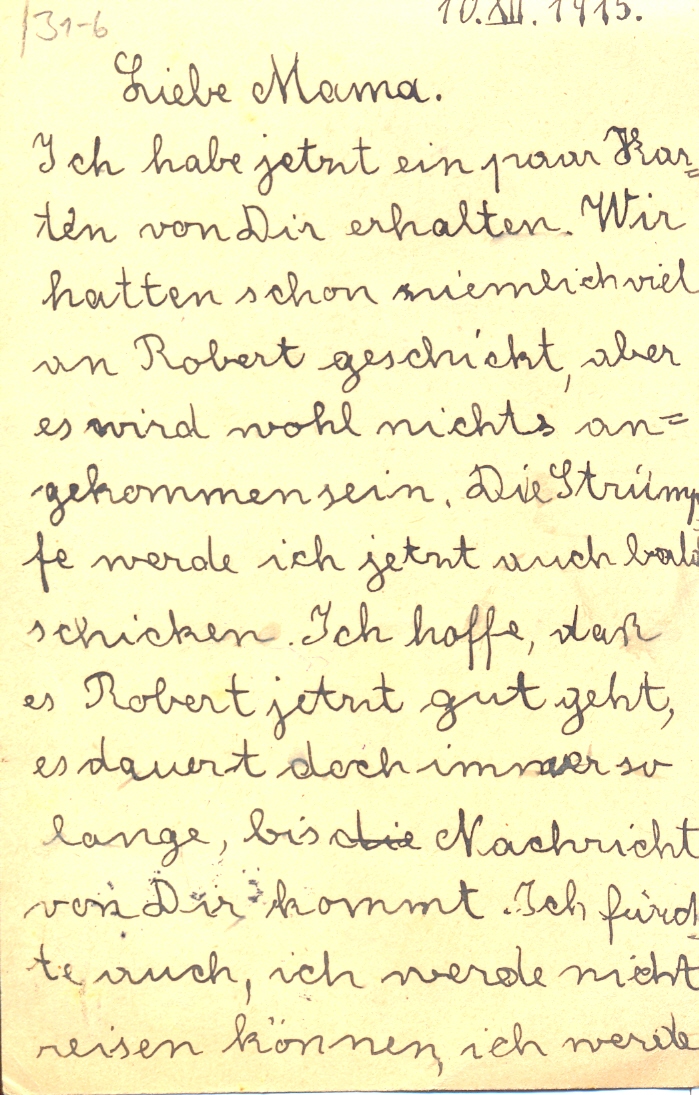 131-6
10.XII.1915.
Liebe Mama.
Ich habe jetzt ein paar Kar=
ten von Dir erhalten. Wir
hatten schon ziemlich viel
an Robert geschickt, aber
es wird wohl nichts an=
gekommen sein. Die Strümp
fe werde ich jetzt auch bald
schicken. Ich hoffe, daß
es Robert jetzt gut geht,
es dauert doch immer so
lange, bis die Nachricht
von Dir kommt. Ich fürch=
te auch, ich werde nicht
reisen können, ich werde